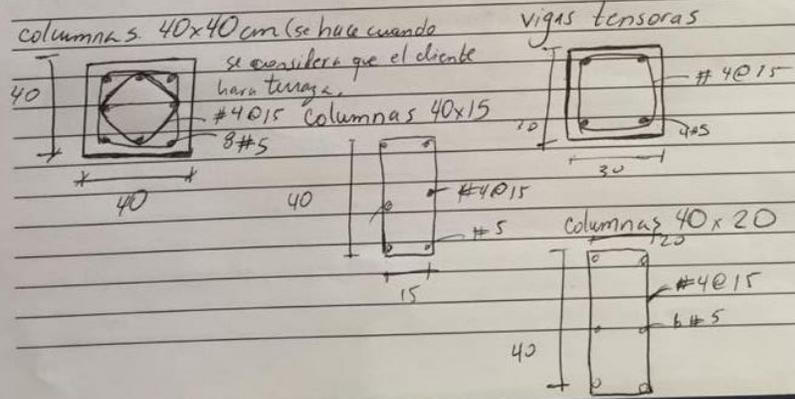 columnas. 40x40 cm (se hace cuando
se considera que el cliente
hara terraza.
40
#4@15
8#5
40
vigas tensoras
#4@15
4#5
30
columnas 40x15
40
#4@15
#5
15
columnas 40x20
20
#4@15
6#5
40